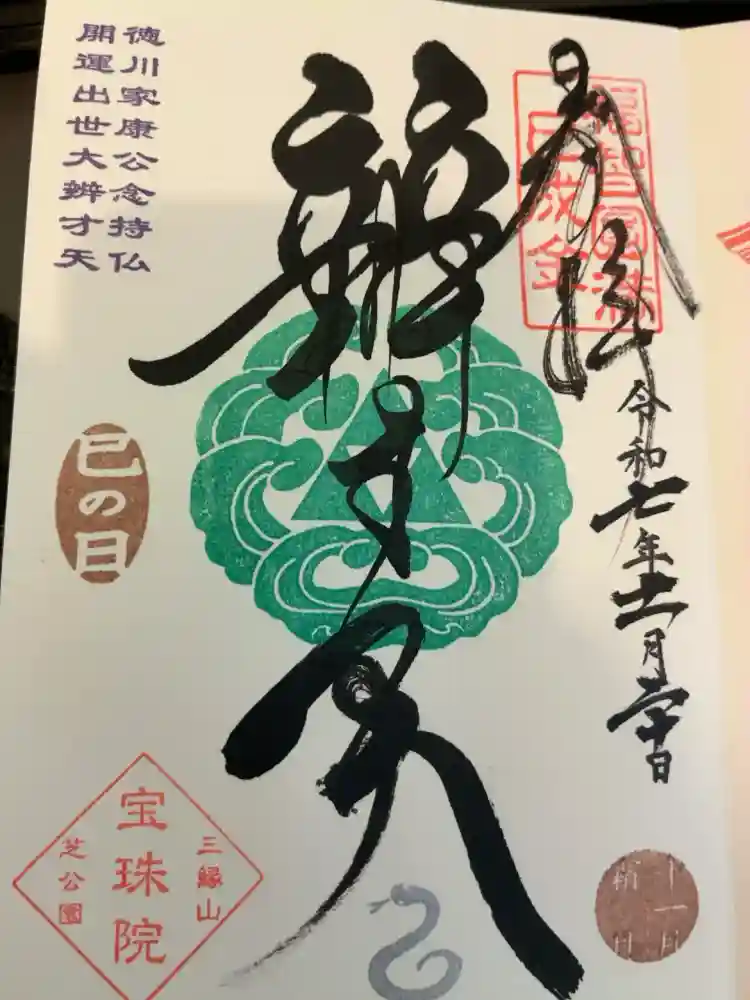 奉拝
福智圓満
巳成金
令和七年十一月二十日
十一月
霜月
辨才天
徳川家康公念持仏
開運出世大辨才天
巳の日
三縁山
宝珠院
芝公園